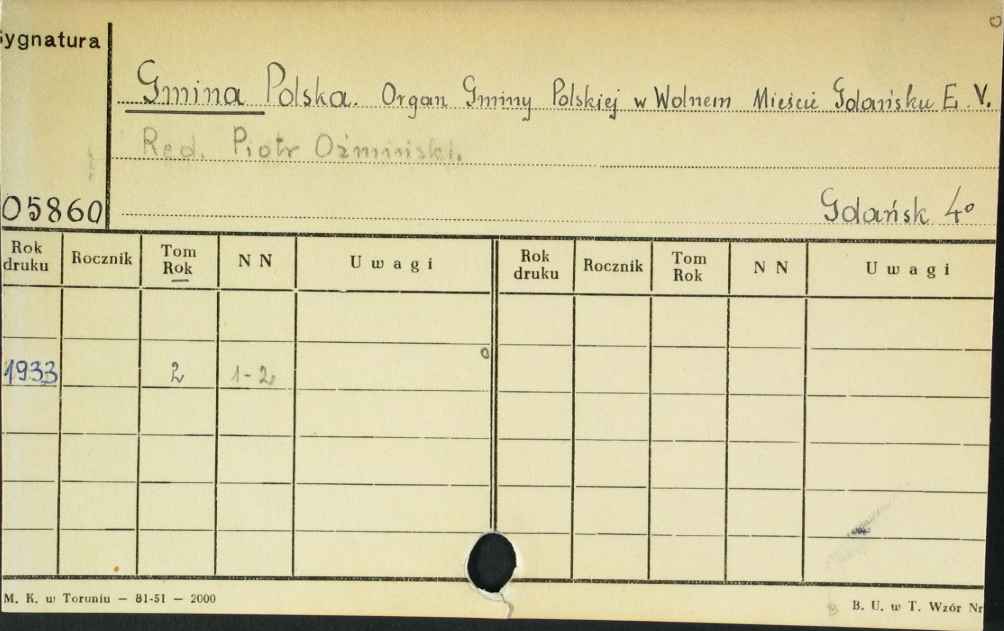 Sygnatura
Gmina Polska. Organ Gminy Polskiej w Wolnem Mieście Gdańsku E. V.
Red. Piotr Oźmiński.
05860
Gdańsk 4°
Rok druku Rocznik Tom Rok N N Uwagi Rok druku Rocznik Tom Rok N N Uwagi
1933 2 1-2
M. K. w Toruniu — 81-51 — 2000
B. U. w T. Wzór Nr